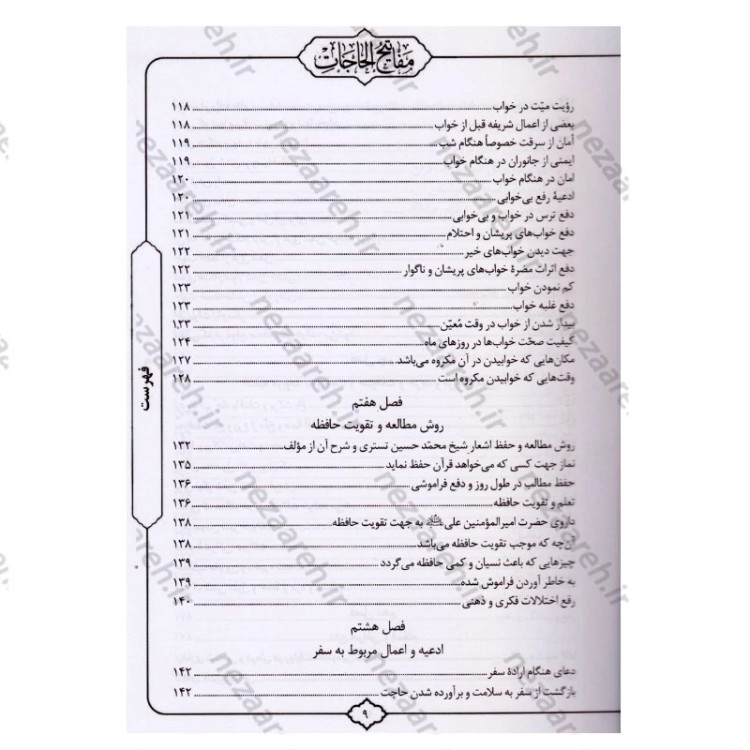 مفاتیح الحاجات
رؤیت میّت در خواب ۱۱۸
بعضی از اعمال شریفه قبل از خواب ۱۱۸
امان از سرقت خصوصاً هنگام شب ۱۱۹
ایمنی از جانوران در هنگام خواب ۱۱۹
امان در هنگام خواب ۱۲۰
ادعیهٔ رفع بی‌خوابی ۱۲۰
دفع ترس در خواب و بی‌خوابی ۱۲۱
دفع خواب‌های پریشان و احتلام ۱۲۱
جهت دیدن خواب‌های خیر ۱۲۲
دفع اثرات مضرهٔ خواب‌های پریشان و ناگوار ۱۲۲
کم نمودن خواب ۱۲۳
دفع غلبه خواب ۱۲۳
بیدار شدن از خواب در وقت مُعیّن ۱۲۳
کیفیت صحّت خواب‌ها در روزهای ماه ۱۲۴
مکان‌هایی که خوابیدن در آن مکروه می‌باشد ۱۲۷
وقت‌هایی که خوابیدن مکروه است ۱۲۸
فصل هفتم
روش مطالعه و تقویت حافظه
روش مطالعه و حفظ اشعار شیخ محمّد حسین تستری و شرح آن از مؤلف ۱۳۲
نماز جهت کسی که می‌خواهد قرآن حفظ نماید ۱۳۵
حفظ مطالب در طول روز و دفع فراموشی ۱۳۶
تعلم و تقویت حافظه ۱۳۶
داروی حضرت امیرالمؤمنین علی به جهت تقویت حافظه ۱۳۸
آن‌چه که موجب تقویت حافظه می‌باشد ۱۳۸
چیزهایی که باعث نسیان و کمی حافظه می‌گردد ۱۳۹
به خاطر آوردن فراموش شده ۱۳۹
رفع اختلالات فکری و ذهنی ۱۴۰
فصل هشتم
ادعیه و اعمال مربوط به سفر
دعای هنگام ارادهٔ سفر ۱۴۲
بازگشت از سفر به سلامت و برآورده شدن حاجت ۱۴۲
فهرست
۹
nezaareh.ir